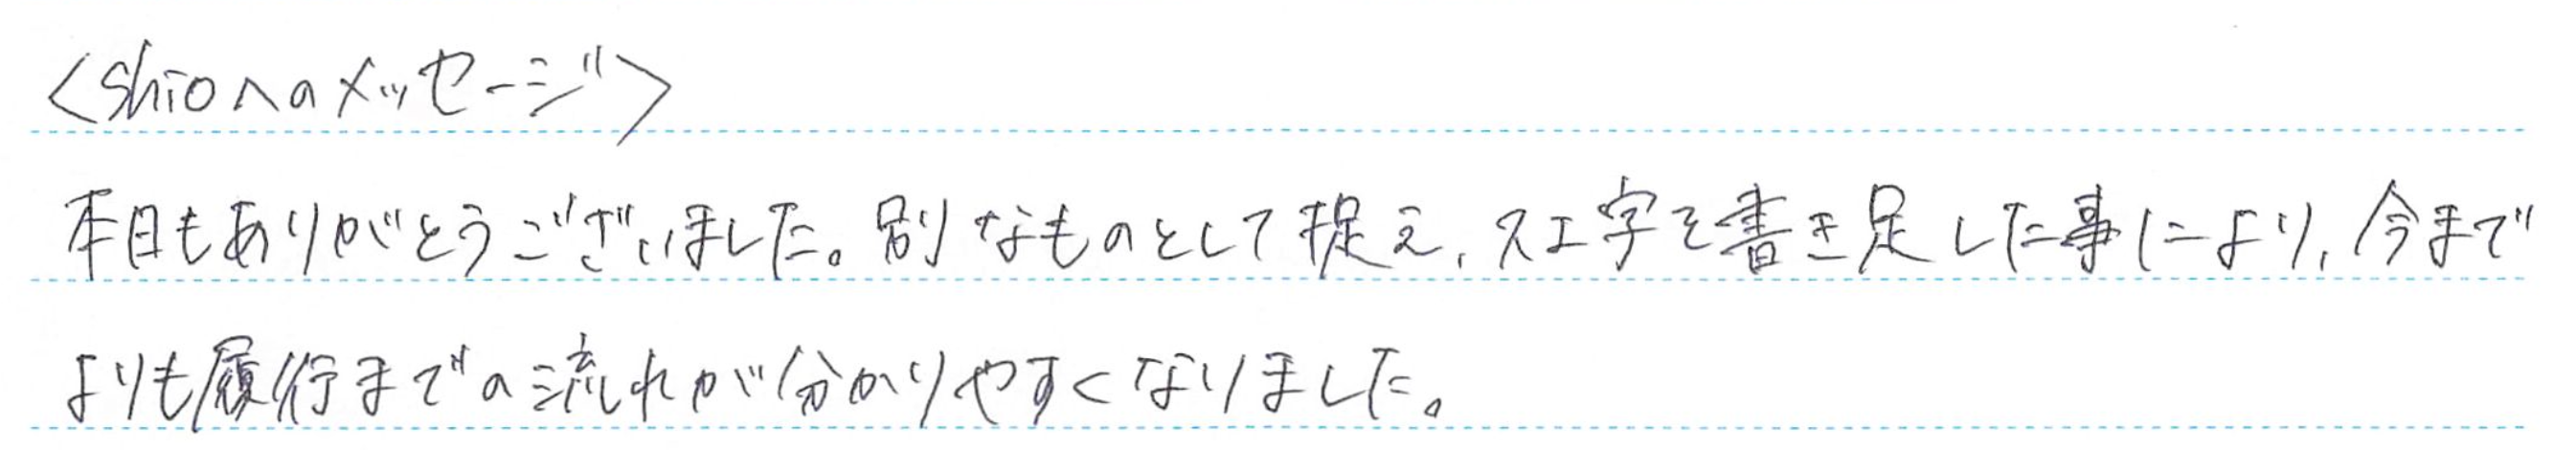 <shioへのメッセージ>
本日もありがとうございました。別なものとして捉え、スエ字を書き足した事により、今まで
よりも履行までの流れが分かりやすくなりました。